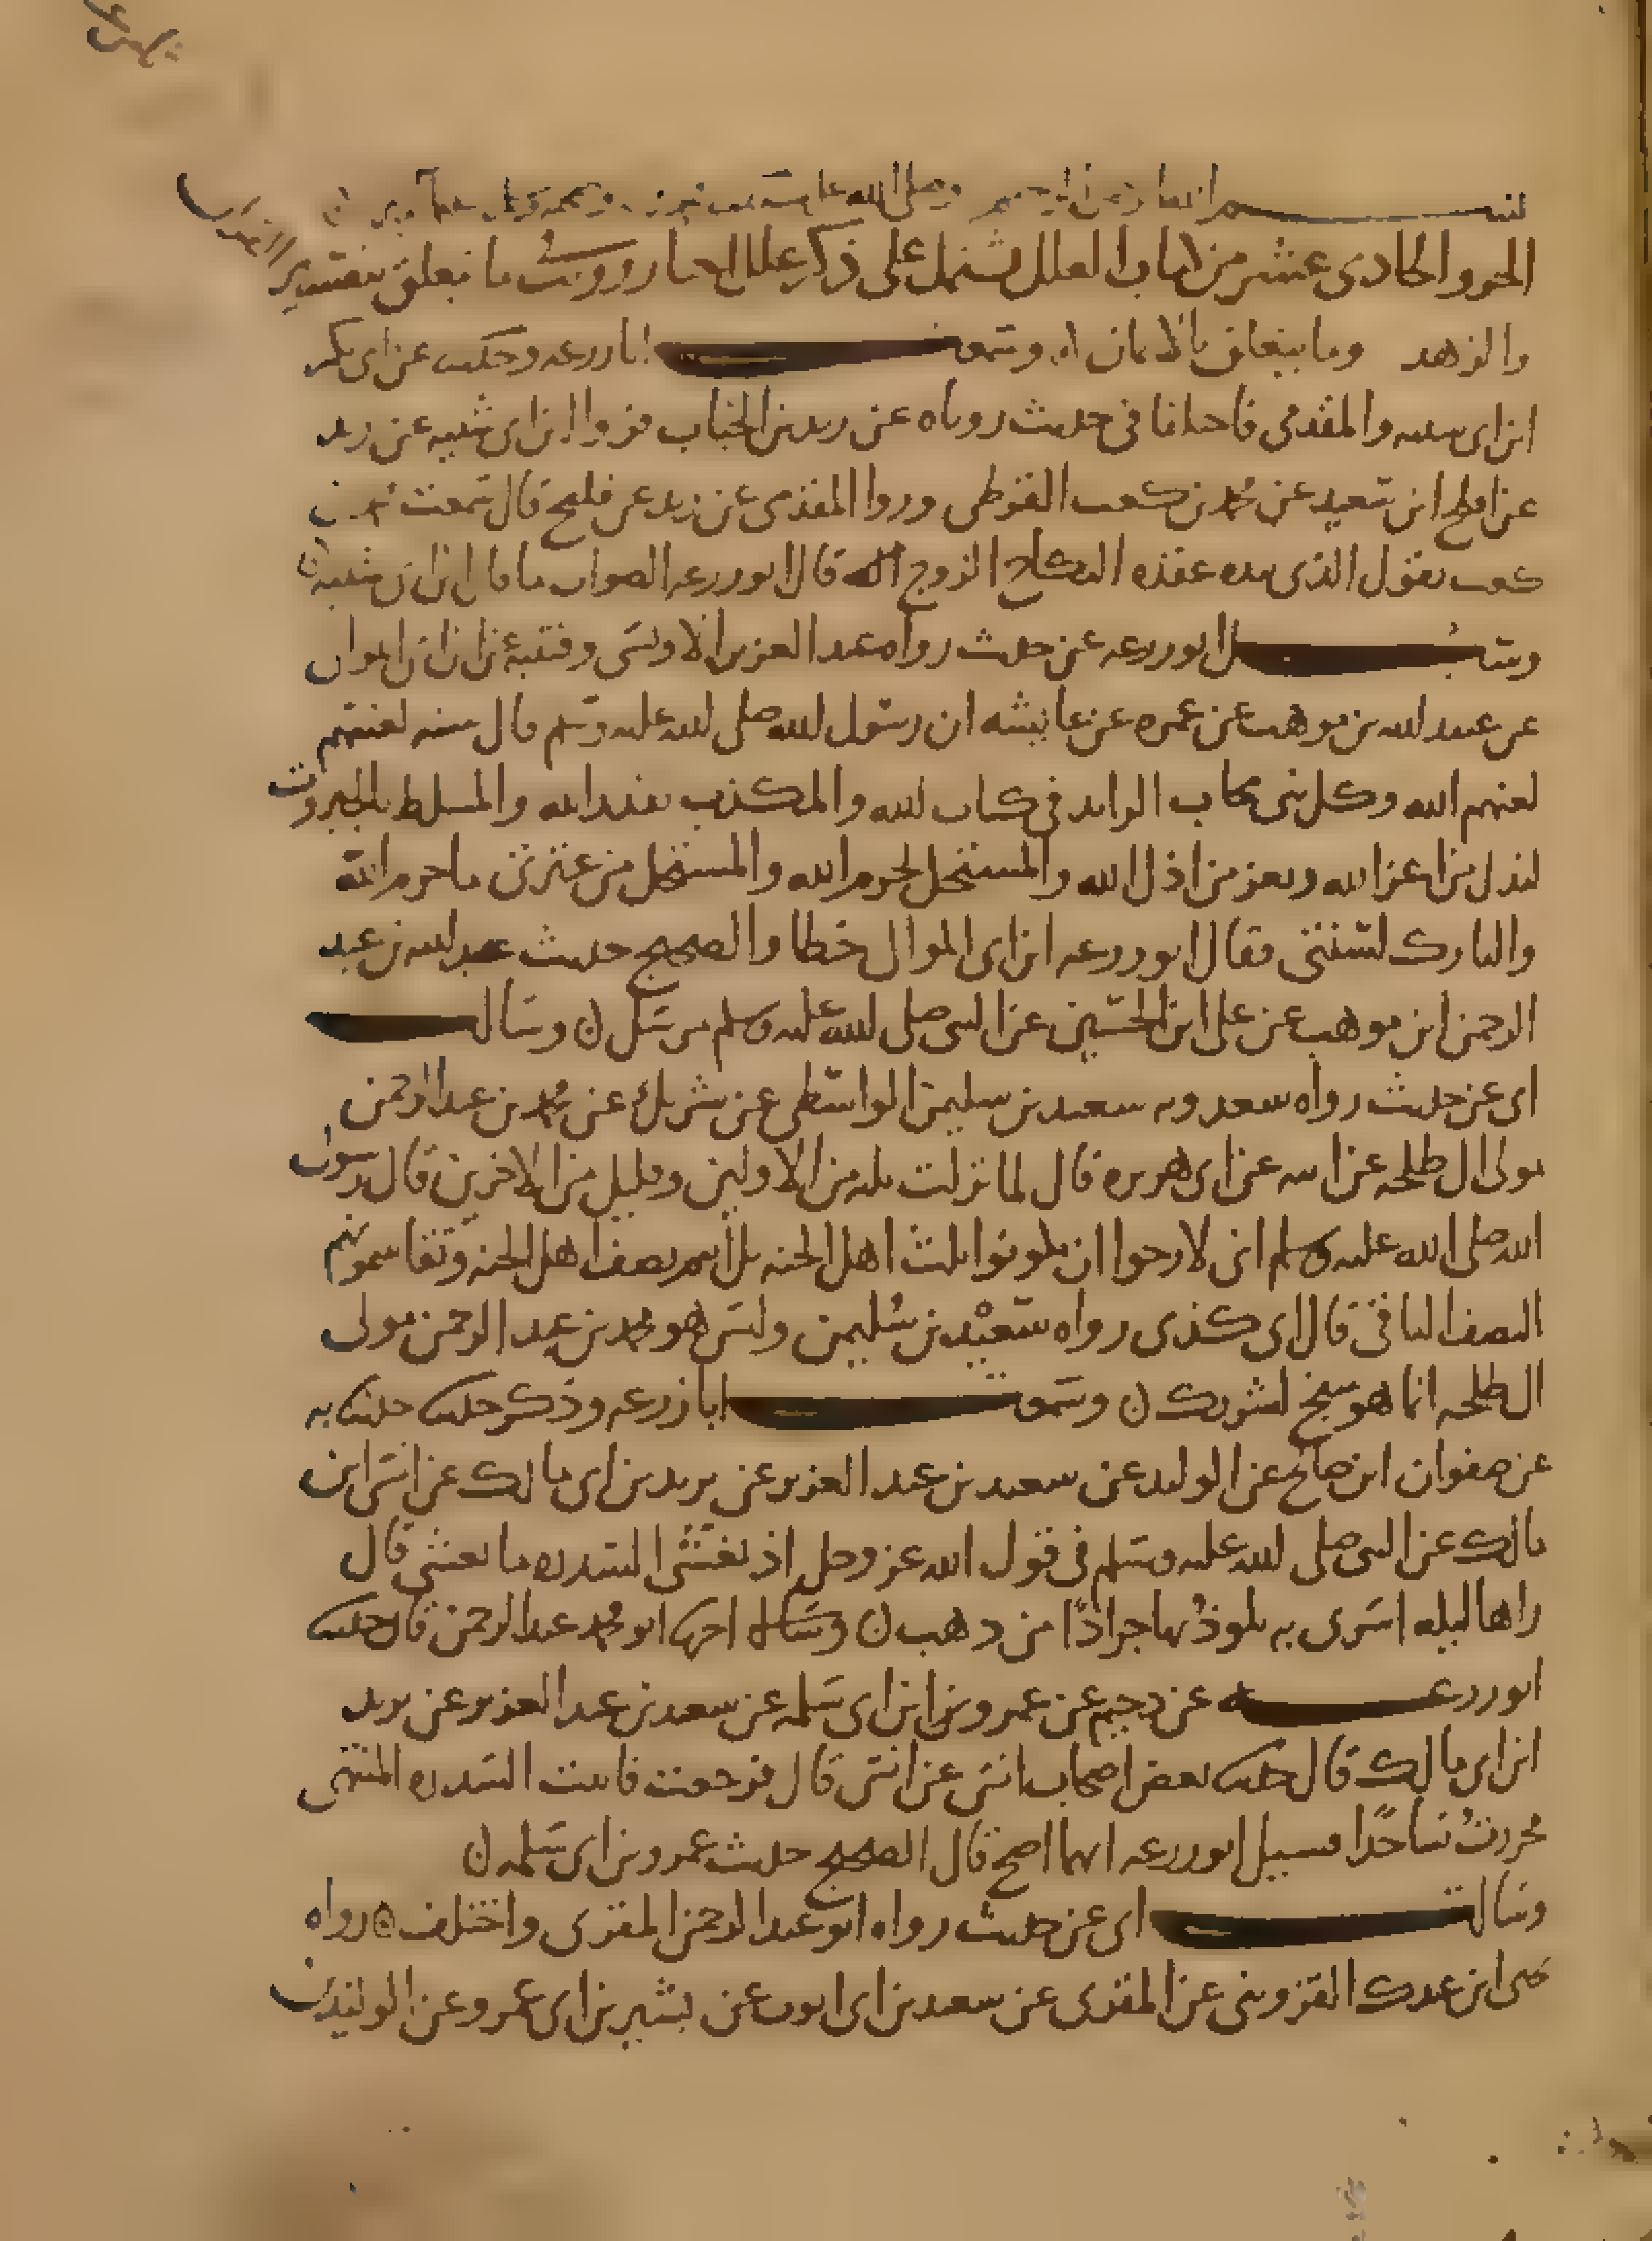 بسم الله الرحمن الرحيم وصلى الله على
الجزو الحادى عشر من كتاب العلل يشتمل على ذكر علل اخبار رويت ما تعلق بتفسير القران
والزهد وما يتعلق بالايمان ن وسمعت ابا زرعه وحديث عن ابى بكر
ابن ابى شيبه والمقدمى فاختلفا فى حديث روياه عن زيد بن الحباب فروا ابن ابى شيبه عن زيد
عن افلح ابن سعيد عن محمد بن كعب القرظى وروا المقدمى عن زيد عن فليح قال سمعت محمد بن
كعب يقول الذى بيده عقده النكاح الزوج قال ابو زرعه الصواب ما قال ابن ابى شيبه ن
وسيل ابو زرعه عن حديث رواه عبد العزيز الاويسى وقتيبة عن ابن ابى الموال
عن عبيد الله بن موهب عن عمره عن عايشه ان رسول الله صلى الله عليه وسلم قال سته لعنتهم
لعنهم الله وكل نبى مجاب الزايد فى كتاب الله والمكذب بقدر الله والمسلط بالجبروت
ليذل من اعز الله ويعز من اذل الله والمستحل لحرم الله والمستحل من عترتى ما حرم الله
والتارك لسنتى فقال ابو زرعه ابن ابى الموال خطا والصحيح حديث عبيد الله بن عبد
الرحمن ابن موهب عن على ابن الحسين عن النبى صلى الله عليه وسلم مرسل ن وسالت
ابى عن حديث رواه سعدويه سعيد بن سليمن الواسطى عن شريك عن محمد بن عبد الرحمن
مولى ال طلحه عن ابيه عن ابى هريره قال لما نزلت ثله من الاولين وقليل من الاخرين قال رسول
الله صلى الله عليه وسلم انى لارجوا ان تكونوا ثلث اهل الجنه بل انتم نصف اهل الجنه وتقاسمونهم
النصف الباقى قال ابى كذى رواه سعيد بن سليمن وليس هو محمد بن عبد الرحمن مولى
ال طلحه انما هو شيخ لشريك ن وسمعت ابا زرعه وذكر حديث حدث به
عن صفوان ابن صالح عن الوليد عن سعيد بن عبد العزيز عن يزيد بن ابى مالك عن انس ابن
مالك عن النبى صلى الله عليه وسلم فى قول الله عز وجل اذ يغشى السدره ما يغشى قال
راها ليله اسرى به يلوذ بها جرادا من ذهب ن وسال ابو محمد عبد الرحمن قال حدث
ابو زرعه عن دحيم عن عمرو بن ابى سلمه عن سعيد بن عبد العزيز عن يزيد
ابن ابى مالك قال حدث بعض اصحاب انس عن انس قال فرجعت فاتيت السدره المنتهى
فخررت ساجدا فسيل ابو زرعه ايهما اصح قال الصحيح حديث عمرو بن ابى سلمه ن
وسالت ابى عن حديث رواه ابو عبد الرحمن المقرى واختلف ن رواه
يحيى ابن عبدك القزوينى عن المقرى عن سعيد بن ابى ايوب عن بشير بن ابى عمرو عن الوليد بن